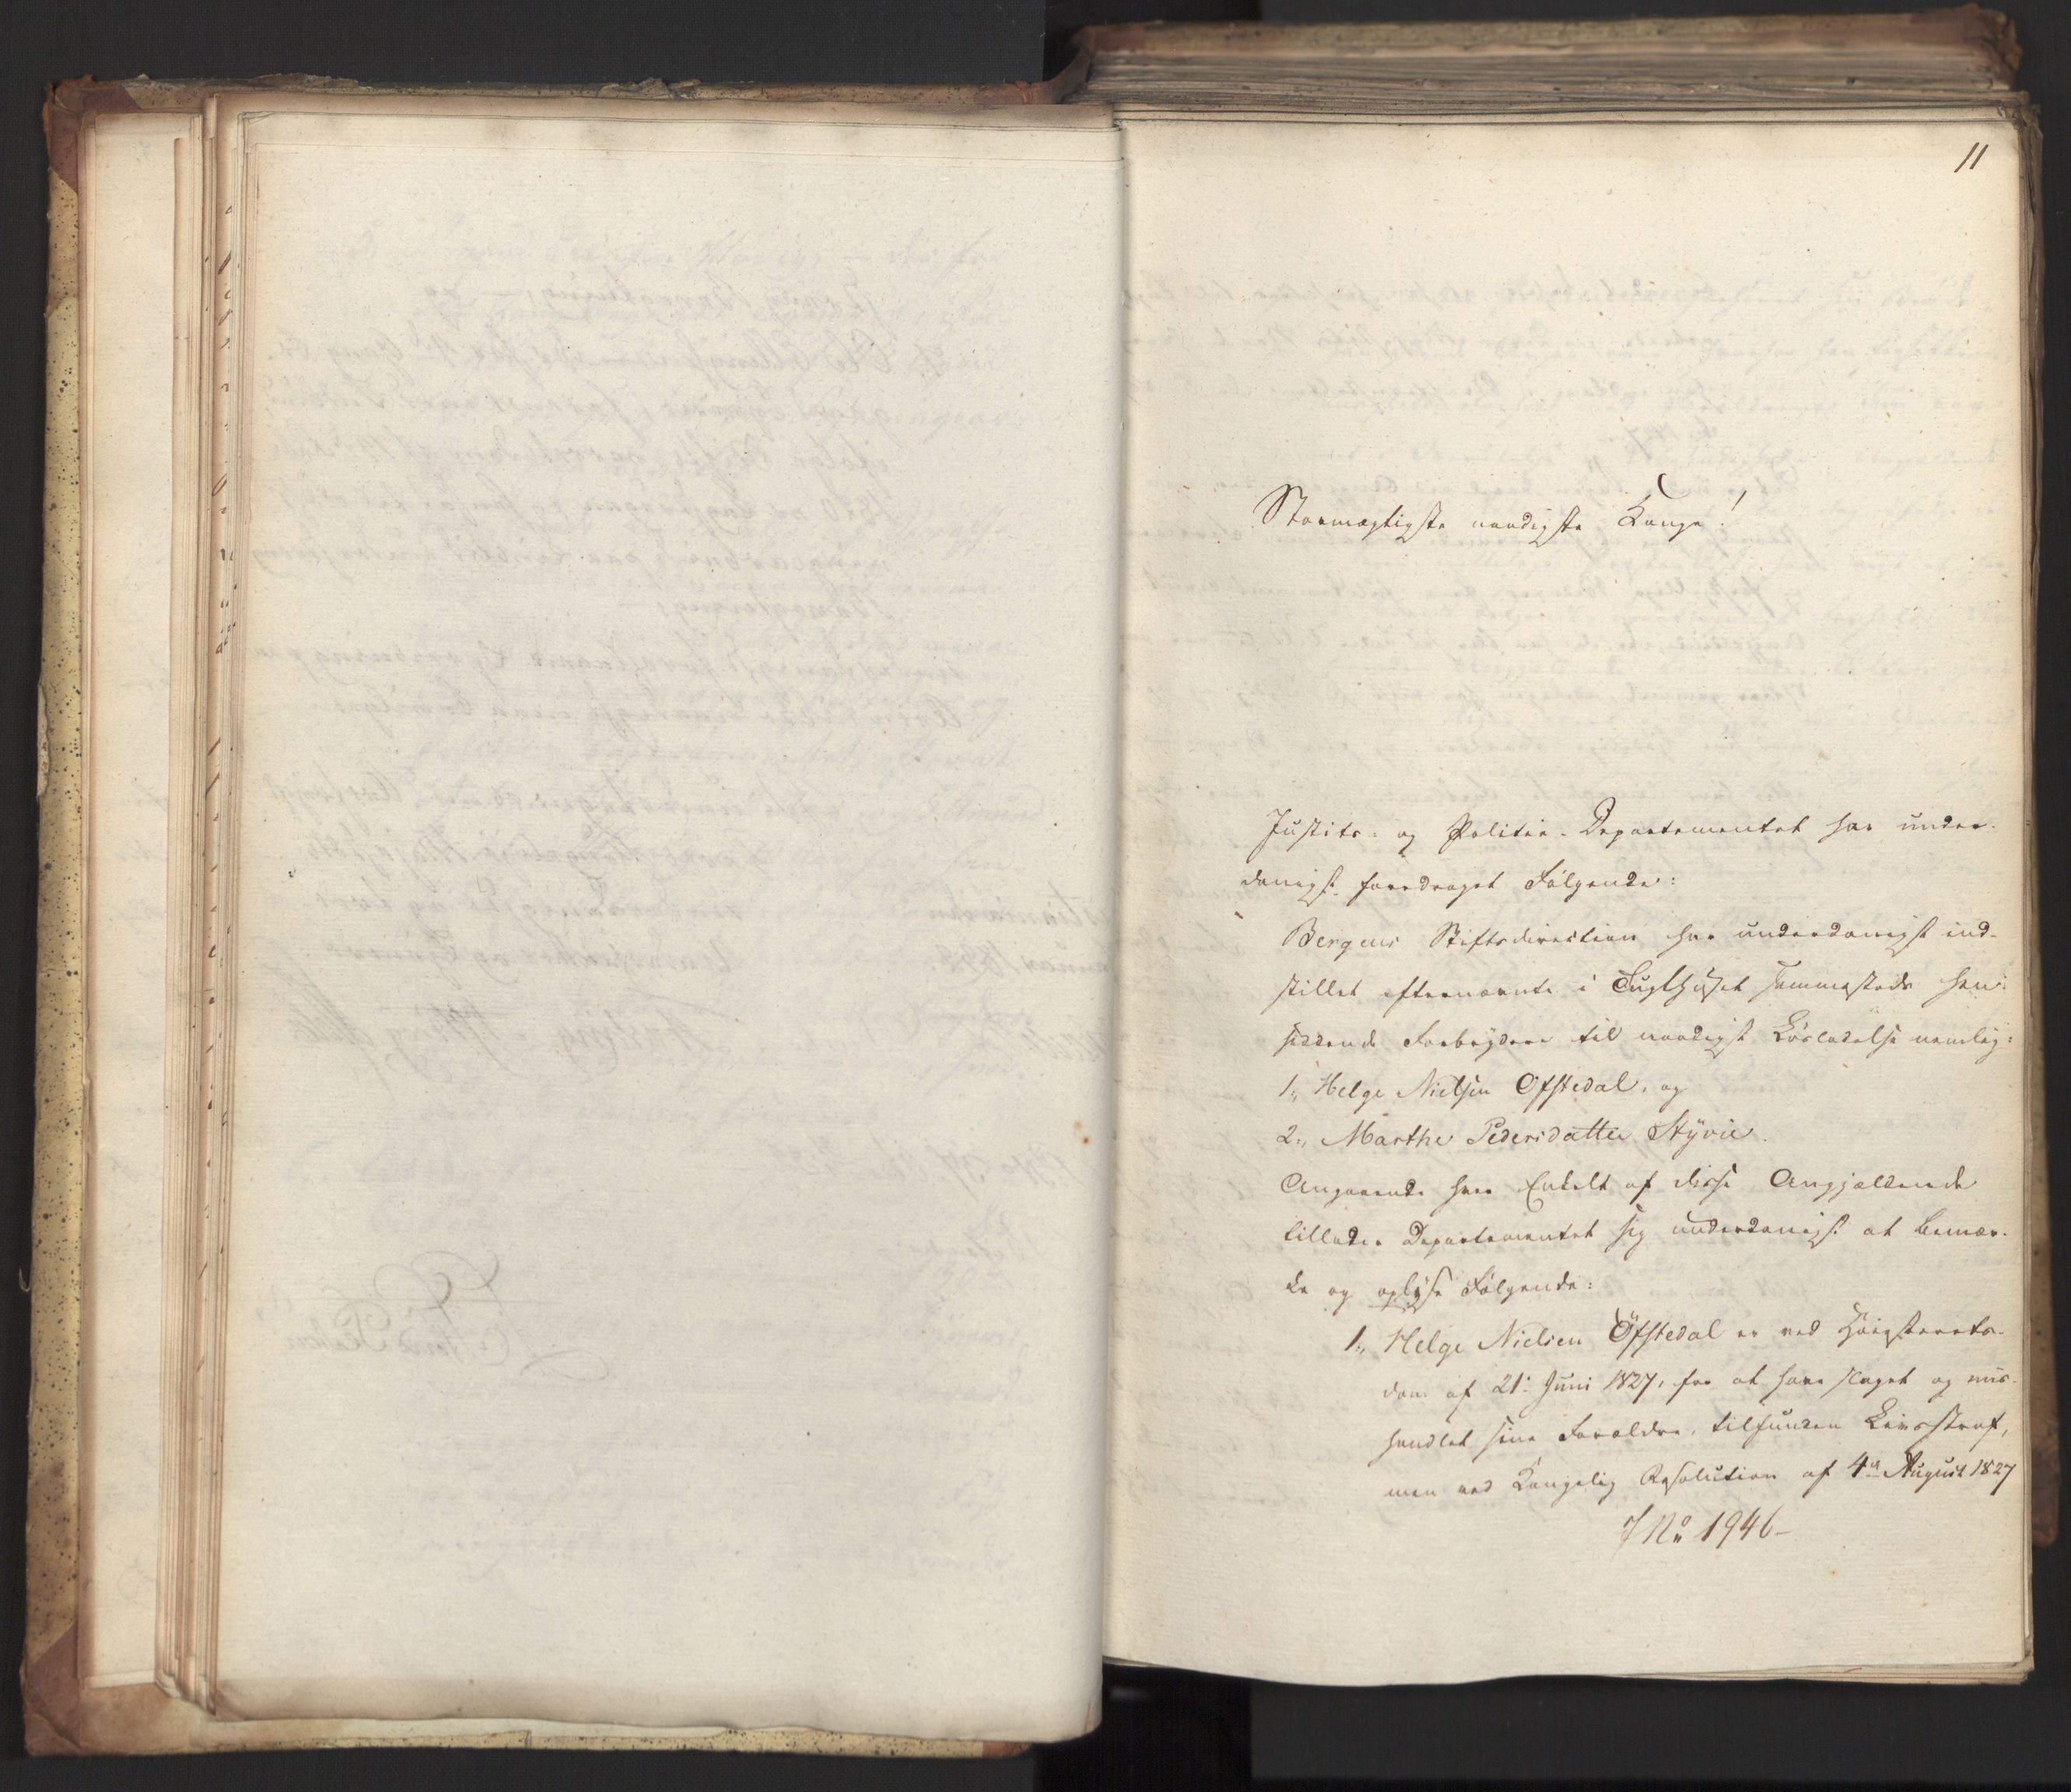 11
Stormægtigste naadigste Konge!
Justits- og Politie-Departementet har under-
danigst foredraget Følgende:
Bergens Stiftsdirection har underdanigst ind-
stillet efternævnte i Tugthuset sammesteds hen-
siddende Forbrydere til naadigst Løsladelse nemlig:
1., Helge Nielsen Ofstedal, og
2., Marthe Pedersdatter Styvie.
Angaaende hver Enkelt af disse Angjældende
tillader Departementet sig underdanigst at bemær-
ke og oplyse Følgende:
1., Helge Nielsen Öfstedal er ved Høiesterets-
dom af 21. Juni 1827, for at have slaget og mis-
handlet sine Forældre, tilfunden Livsstraf,
men ved Kongelig Resolution af 4de August 1827
J No 1946-